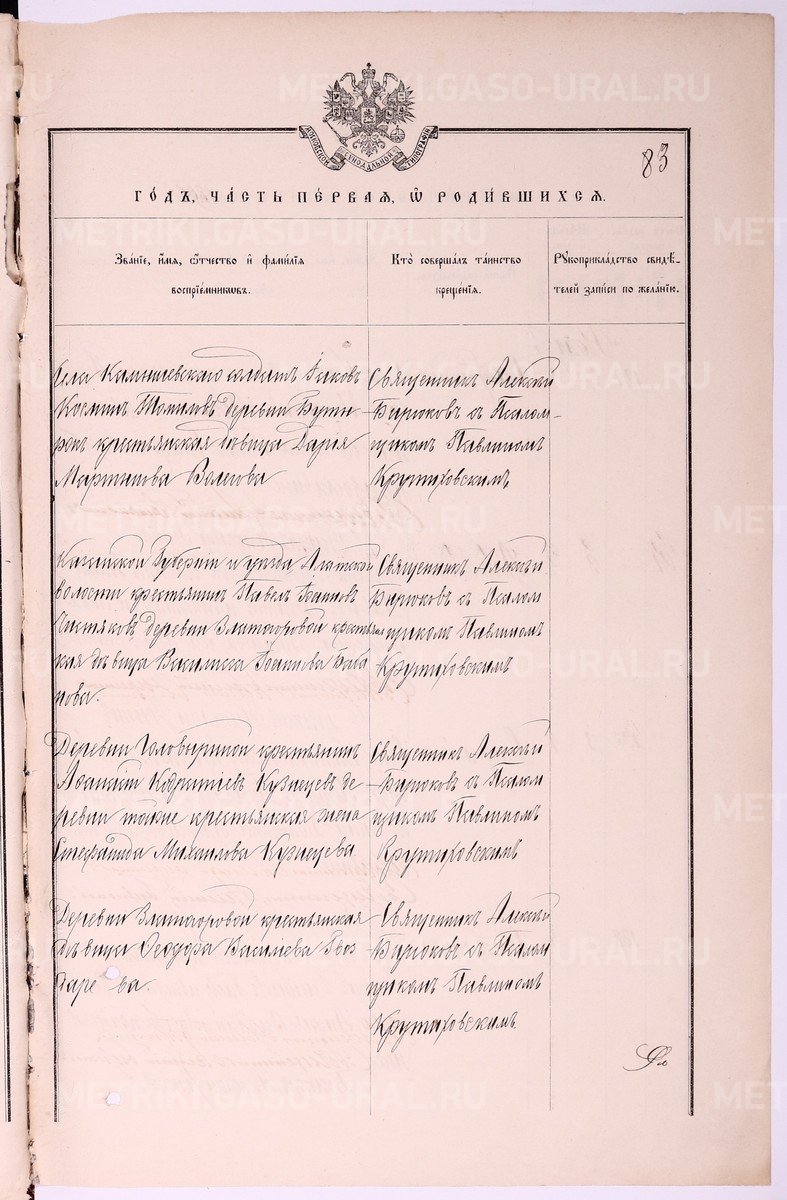 METRIKI.GASO-URAL.RU
МОСКОВСКОЙ СѴНОДАЛЬНОЙ ТИПОГРАФІИ
83
ГО́ДЪ, ЧА́СТЬ ПЕ́РВАЯ, Ѡ РОДИ́ВШИХСЯ.
Зва́нїе, и҆́мя, ѻ҆́тчество и҆ фами́лїя
воспрїе́мникѡвъ.
Кто̀ соверша́лъ та́инство
креще́нїя.
Рꙋкоприкла́дство свидѣ́-
телей за́писи по жела́нїю.
Села Камышевскаго солдатъ Іаковъ
Козминъ Томиловъ, деревни
крестьянская дѣвица Дарія
Мартинова
Священникъ Алексѣй
Бирюковъ съ Псалом-
щикомъ Павлиномъ
Крутиховскимъ
Казанской Губерніи и уѣзда
волости крестьянинъ Павелъ Іоанновъ
Чистяковъ, деревни Златогоровой крестьян
ская дѣвица Василисса Іоаннова Баба
нова.
Священникъ Алексѣй
Бирюковъ съ Псалом
щикомъ Павлиномъ
Крутиховскимъ
Деревни Головыриной крестьянинъ
Аѳанасій Кодратіевъ Кузнецевъ де
ревни тойже крестьянская жена
Стефанида Михаилова Кузнецева
Священникъ Алексѣй
Бирюковъ съ Псалом
щикомъ Павлиномъ
Крутиховскимъ
Деревни Златогоровой крестьянская
дѣвица Ѳеодора Василіева Гвоз
дарева.
Священникъ Алексѣй
Бирюковъ съ Псалом
щикомъ Павлиномъ
Крутиховскимъ